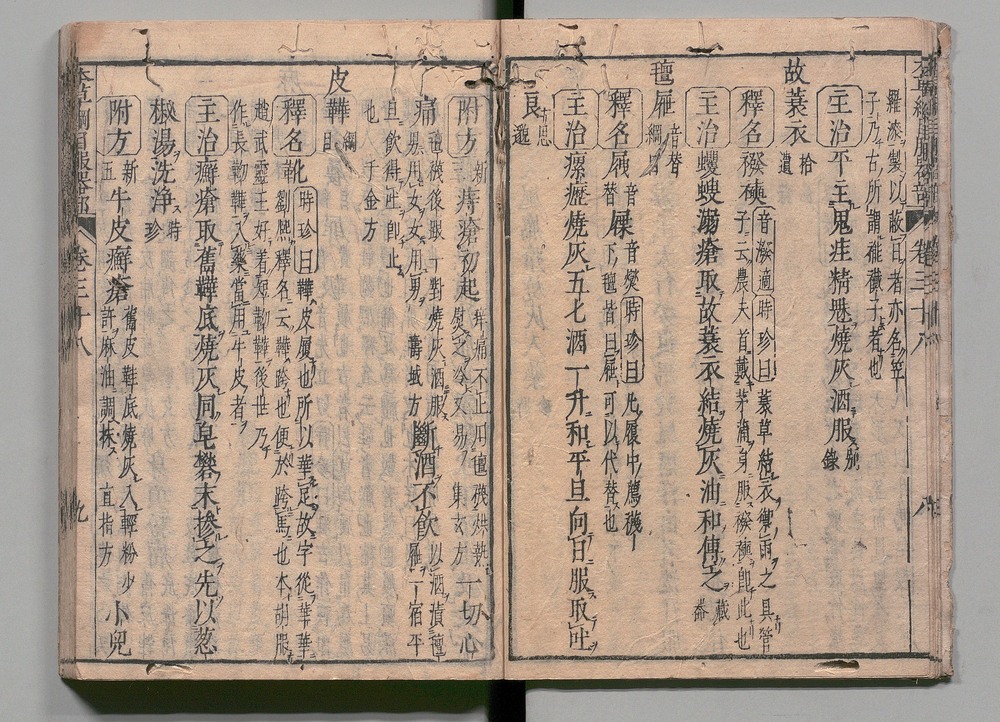 羅漆製以蔽日者亦名笠
子乃古所謂襶子者也
主治平主鬼疰精魅燒灰酒服別錄
故蓑衣拾遺
釋名襏襫音潑適時珍曰蓑草結衣禦雨之具管
子云農夫首戴茅蒲身服襏襫卽此也
主治蠼螋溺瘡取故蓑衣結燒灰油和傅之藏器
氊屜綱目音替
釋名屜音替屧音燮時珍曰凡履中薦襪
下氊皆曰屜可以代替也
主治瘰癧燒灰五七酒一升和平旦向日服取吐
良思邈
附方新痔瘡初起痒痛不止用氊襪烘熱
熨之冷又易集玄方一切心
痛氊襪後跟一對燒灰酒服
男用女女用男壽域方斷酒不飲以酒漬氊
屜一宿平
旦飲得吐卽止
也千金方
皮鞾綱目
釋名靴時珍曰鞾皮履也所以華足故字從革華
劉熙釋名云鞾跨也便於跨馬也本胡服
趙武靈王好着短靿鞾後世乃
作長靿鞾入藥當用牛皮者
主治癬瘡取舊鞾底燒灰同皂礬末摻之先以葱
椒湯洗淨時珍
附方新五牛皮癬瘡舊皮鞋底燒灰入輕粉少
許麻油調抹直指方小兒